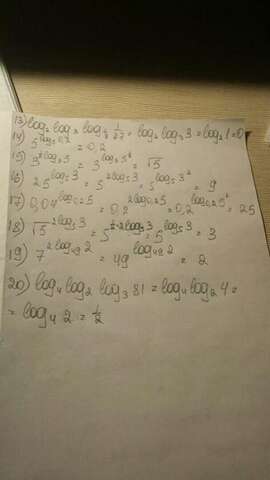 13) log₂ log₃ log_{1/3} 1/27 = log₂ log₃ 3 = log₂ 1 = 0
14) 5^{log₅ 0,2} = 0,2
15) = 3^{log₃ 5^{½}} = √5
16) 25^{log₅ 3} = 5^{2 log₅ 3} = 5^{log₅ 3²} = 9
17) 0,04^{log_{0,2} 5} = 0,2^{2 log_{0,2} 5} = 0,2^{log_{0,2} 5²} = 25
18) √5^{2 log₅ 3} = 5^{½·2 log₅ 3} = 5^{log₅ 3} = 3
19) 7^{2 log₄₉ 2} = 49^{log₄₉ 2} = 2
20) log₄ log₂ log₃ 81 = log₄ log₂ 4 =
= log₄ 2 = ½